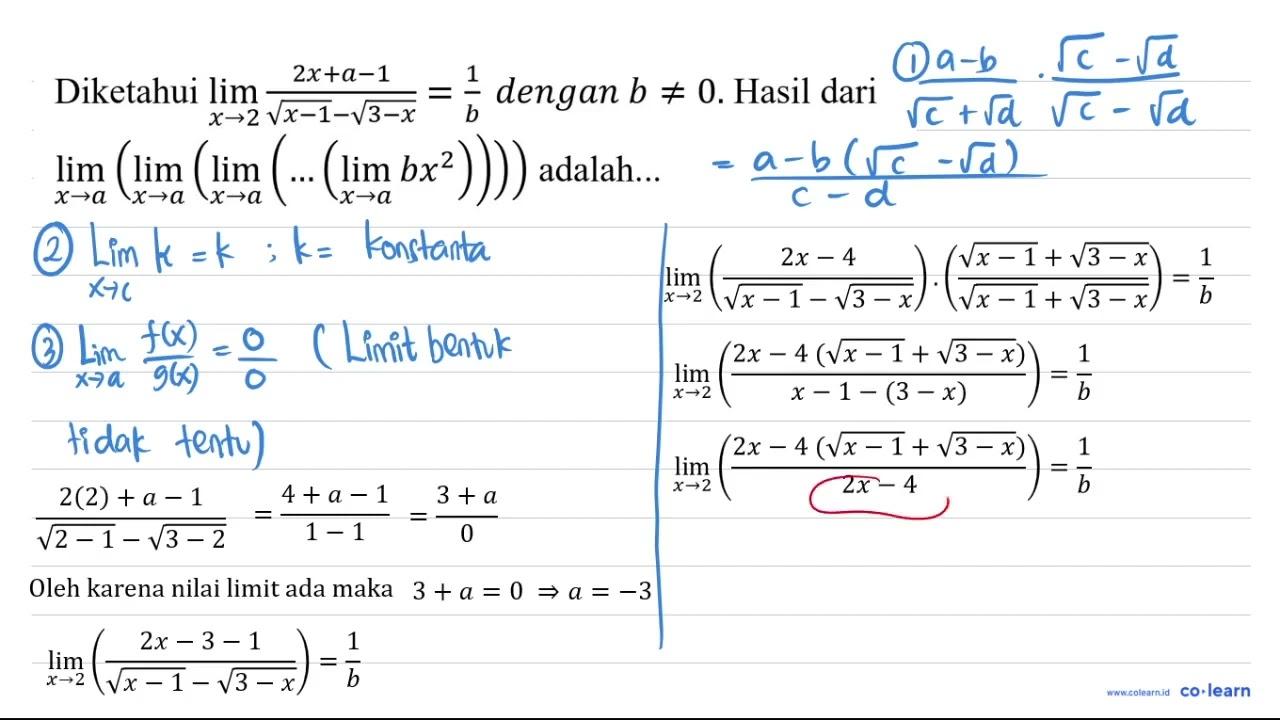 Diketahui lim x→2 (2x+a−1)/(√(x−1)−√(3−x)) = 1/b dengan b ≠ 0. Hasil dari
lim x→a (lim x→a (lim x→a (...(lim x→a bx²)))) adalah...
① (a−b)/(√c+√d) · (√c−√d)/(√c−√d)
= a−b(√c−√d)/(c−d)
② Lim x→c k = k ; k = konstanta
③ Lim x→a f(x)/g(x) = 0/0 (Limit bentuk
tidak tentu)
(2(2)+a−1)/(√(2−1)−√(3−2)) = (4+a−1)/(1−1) = (3+a)/0
Oleh karena nilai limit ada maka 3 + a = 0 ⇒ a = −3
lim x→2 ((2x−3−1)/(√(x−1)−√(3−x))) = 1/b
lim x→2 ((2x−4)/(√(x−1)−√(3−x))) . ((√(x−1)+√(3−x))/(√(x−1)+√(3−x))) = 1/b
lim x→2 (2x−4 (√(x−1)+√(3−x))/(x−1−(3−x))) = 1/b
lim x→2 (2x−4 (√(x−1)+√(3−x))/(2x−4)) = 1/b
www.colearn.id co·learn